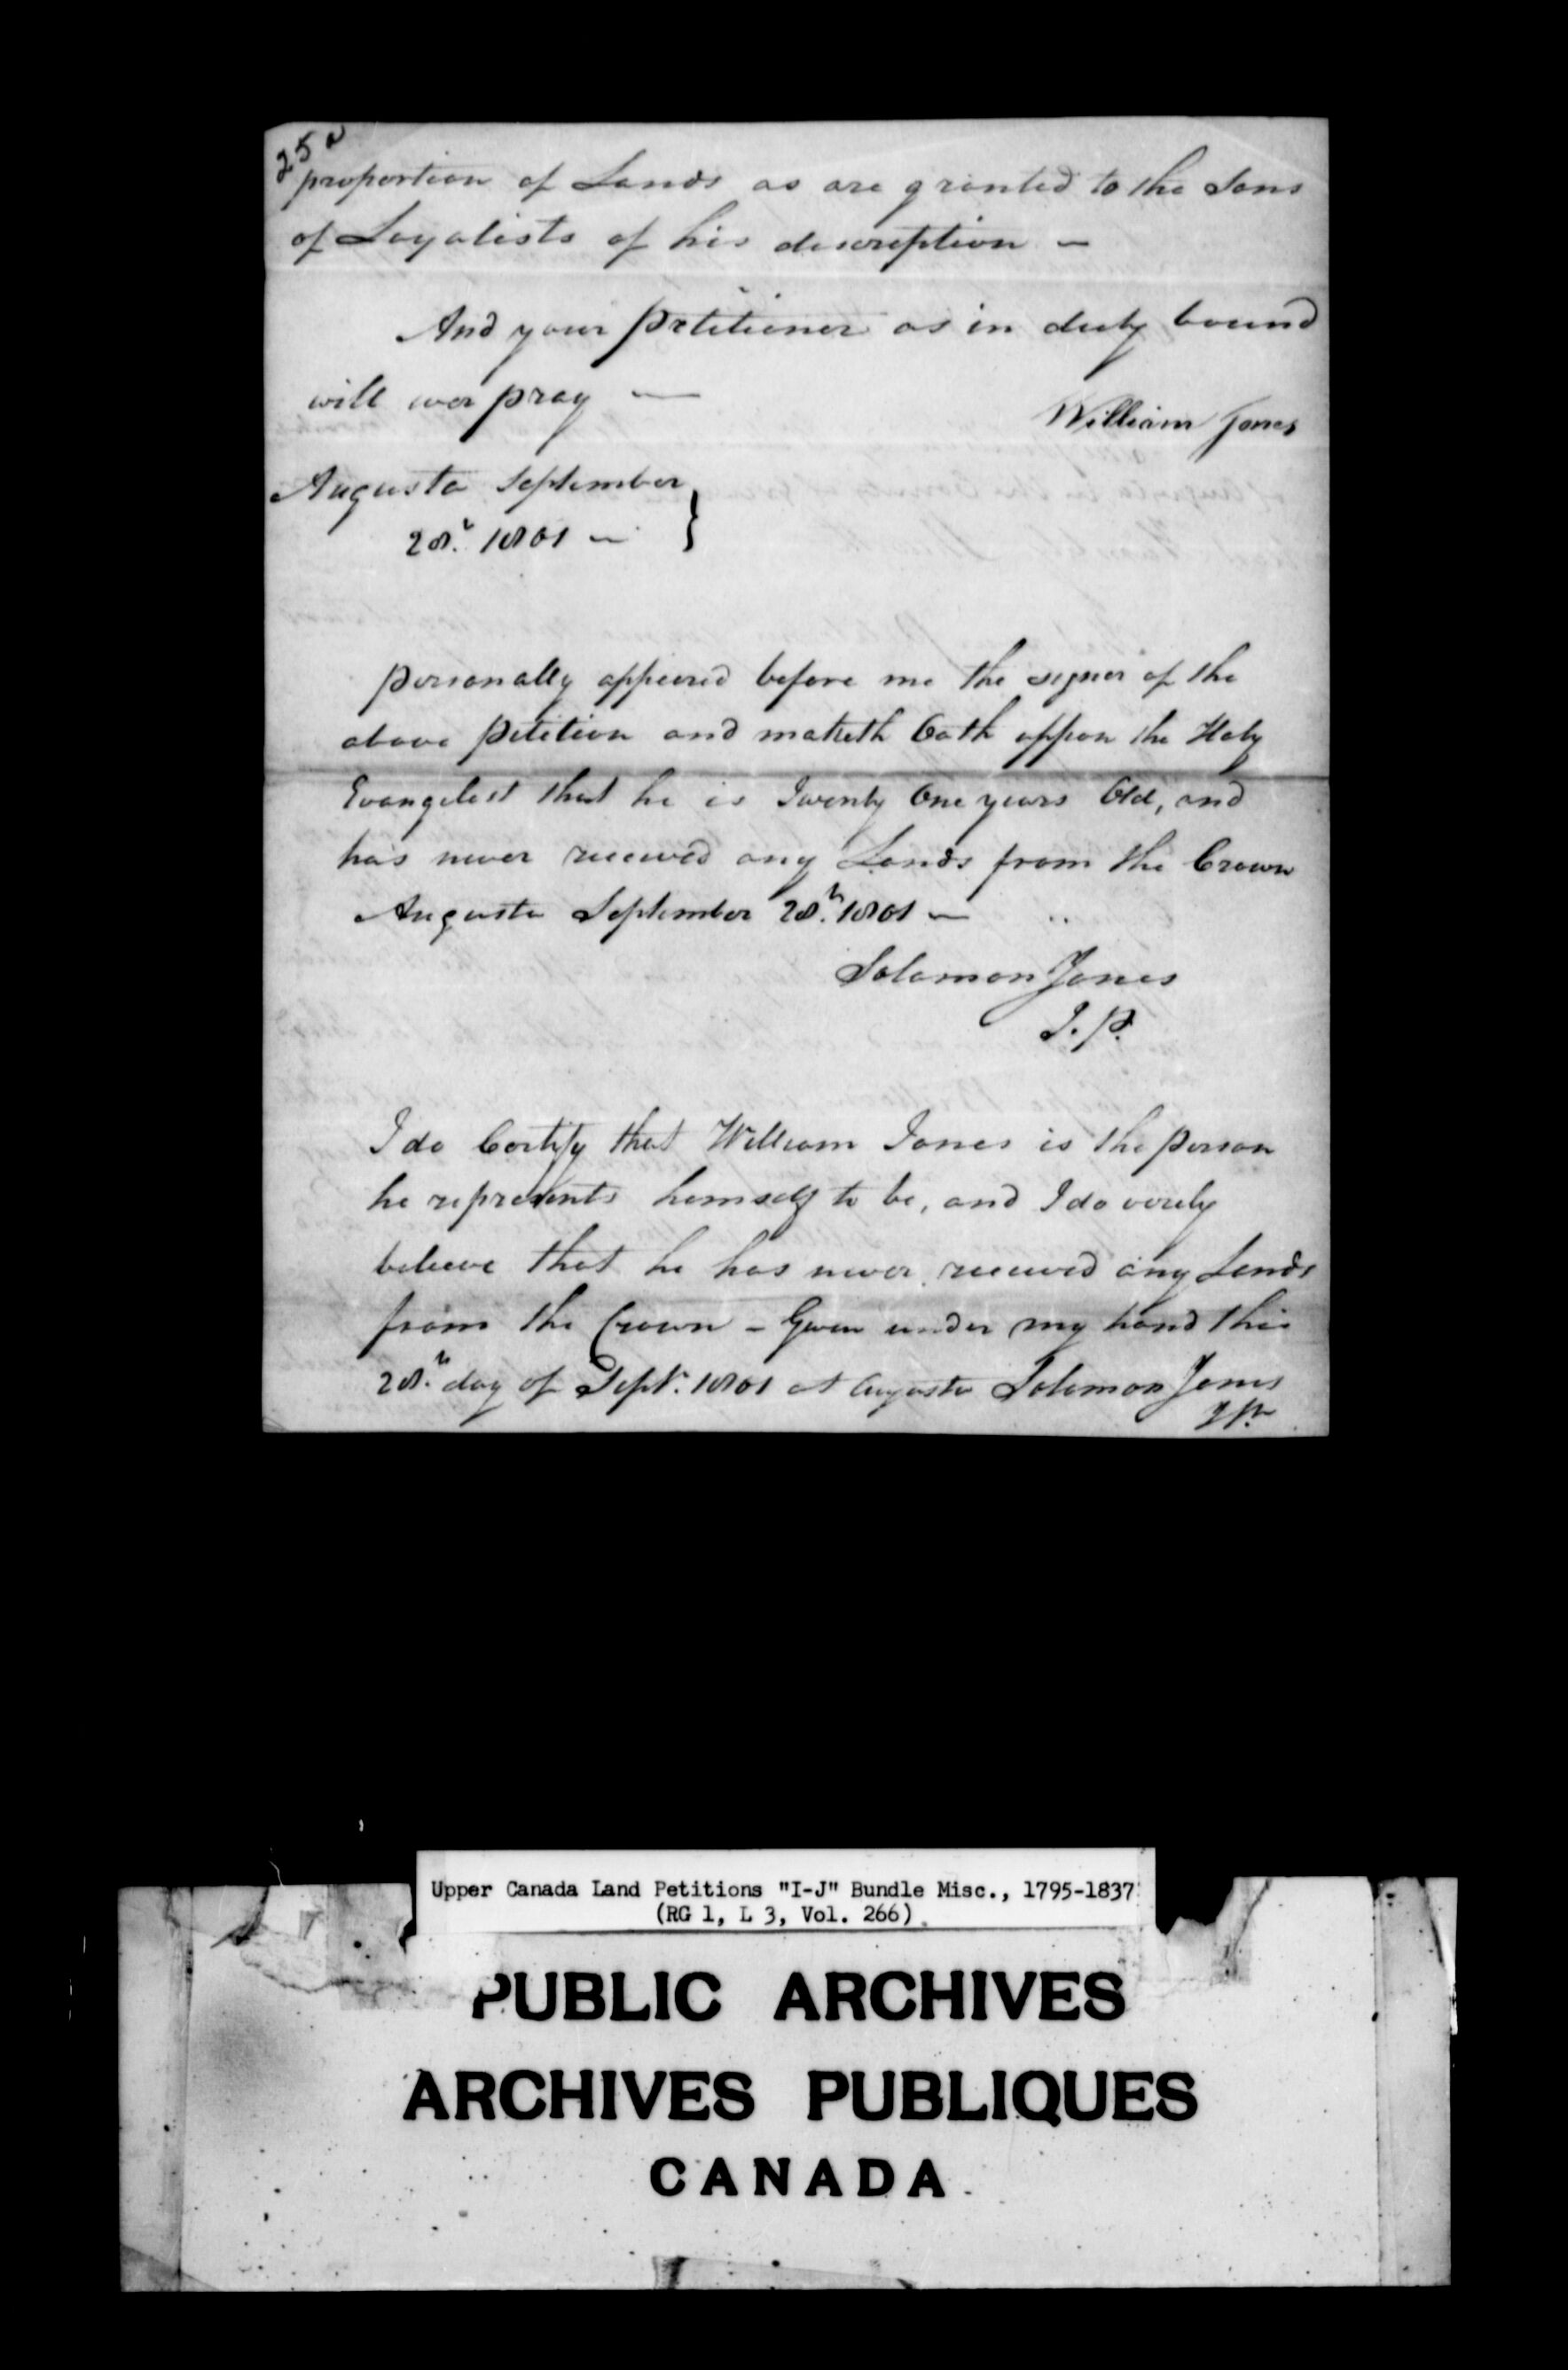 25a
proportion of Lands as are granted to the Sons
of Loyalists of his descreption —
And your petitioner as in duty bound
will ever pray —
William Jones
Augusta September
28.h 1801 — }
personally appeared before me the signer of the
above petition and maketh Oath uppon the Holy
Evangelest that he is Twenty One years Old, and
has never received any Lands from the Crown
Augusta September 28.h 1801 —
Solomon Jones
J. P.
I do Certify that William Jones is the person
he represents hemself to be, and I do verely
beleeve that he has never received any Lands
from the Crown – Given under my hand this
28.h day of Sept.r 1801 at Augusta Solomon Jones
JP.
Upper Canada Land Petitions "I-J" Bundle Misc., 1795-1837
(RG 1, L 3, Vol. 266)
PUBLIC ARCHIVES
ARCHIVES PUBLIQUES
CANADA